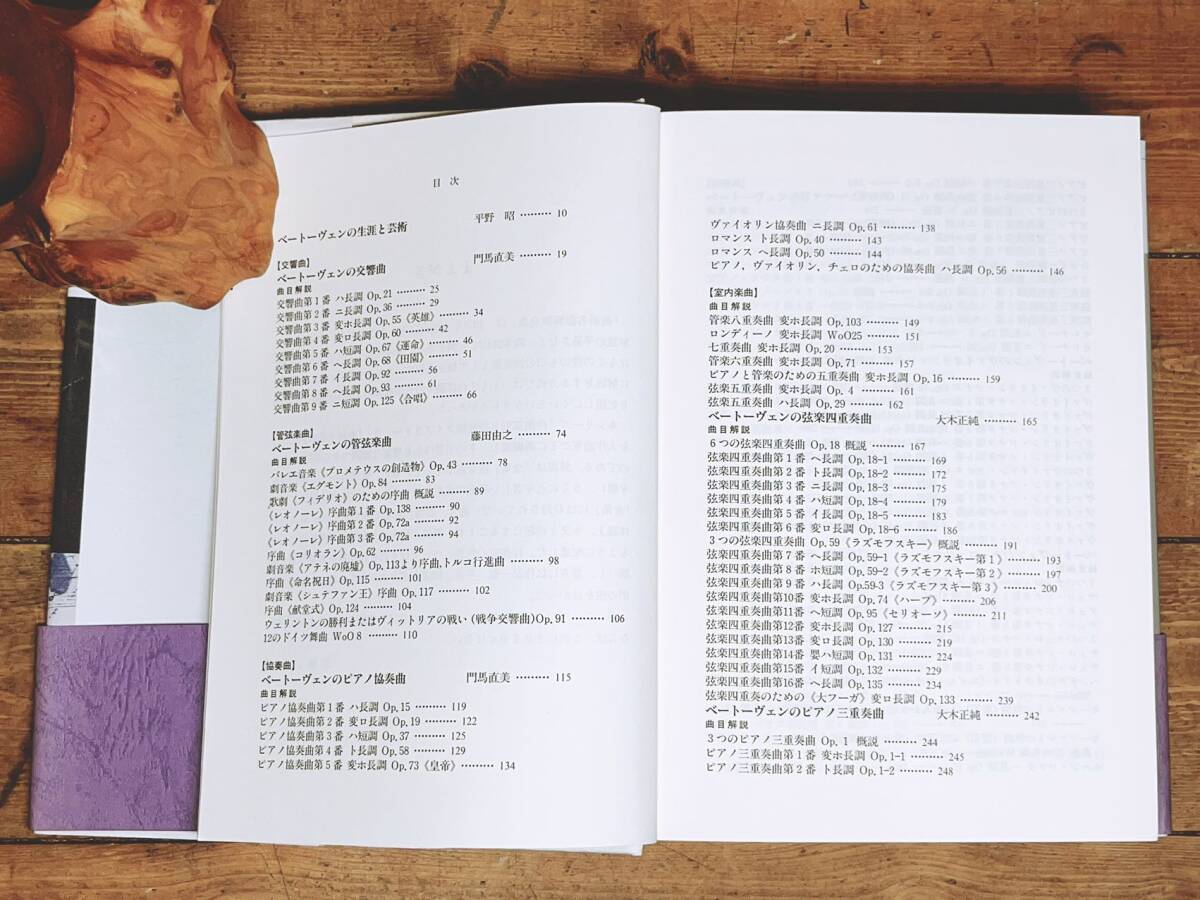 目 次
ベートーヴェンの生涯と芸術 平野 昭 ……… 10
【交響曲】
ベートーヴェンの交響曲 門馬直美 ……… 19
曲目解説
交響曲第1番 ハ長調 Op.21 ……… 25
交響曲第2番 ニ長調 Op.36 ……… 29
交響曲第3番 変ホ長調 Op.55《英雄》 ……… 34
交響曲第4番 変ロ長調 Op.60 ……… 42
交響曲第5番 ハ短調 Op.67《運命》 ……… 46
交響曲第6番 ヘ長調 Op.68《田園》 ……… 51
交響曲第7番 イ長調 Op.92 ……… 56
交響曲第8番 ヘ長調 Op.93 ……… 61
交響曲第9番 ニ短調 Op.125《合唱》 ……… 66
【管弦楽曲】
ベートーヴェンの管弦楽曲 藤田由之 ……… 74
曲目解説
バレエ音楽《プロメテウスの創造物》Op.43 ……… 78
劇音楽《エグモント》Op.84 ……… 83
歌劇《フィデリオ》のための序曲 概説 ……… 89
《レオノーレ》序曲第1番 Op.138 ……… 90
《レオノーレ》序曲第2番 Op.72a ……… 92
《レオノーレ》序曲第3番 Op.72a ……… 94
序曲《コリオラン》Op.62 ……… 96
劇音楽《アテネの廃墟》Op.113より序曲,トルコ行進曲 ……… 98
序曲《命名祝日》Op.115 ……… 101
劇音楽《シュテファン王》序曲 Op.117 ……… 102
序曲《献堂式》Op.124 ……… 104
ウェリントンの勝利またはヴィットリアの戦い(戦争交響曲)Op.91 ……… 106
12のドイツ舞曲 WoO 8 ……… 110
【協奏曲】
ベートーヴェンのピアノ協奏曲 門馬直美 ……… 115
曲目解説
ピアノ協奏曲第1番 ハ長調 Op.15 ……… 119
ピアノ協奏曲第2番 変ロ長調 Op.19 ……… 122
ピアノ協奏曲第3番 ハ短調 Op.37 ……… 125
ピアノ協奏曲第4番 ト長調 Op.58 ……… 129
ピアノ協奏曲第5番 変ホ長調 Op.73《皇帝》 ……… 134
ヴァイオリン協奏曲 ニ長調 Op.61 ……… 138
ロマンス ト長調 Op.40 ……… 143
ロマンス ヘ長調 Op.50 ……… 144
ピアノ, ヴァイオリン, チェロのための協奏曲 ハ長調 Op.56 ……… 146
【室内楽曲】
曲目解説
管楽八重奏曲 変ホ長調 Op.103 ……… 149
ロンディーノ 変ホ長調 WoO25 ……… 151
七重奏曲 変ホ長調 Op.20 ……… 153
管楽六重奏曲 変ホ長調 Op.71 ……… 157
ピアノと管楽のための五重奏曲 変ホ長調 Op.16 ……… 159
弦楽五重奏曲 変ホ長調 Op. 4 ……… 161
弦楽五重奏曲 ハ長調 Op.29 ……… 162
ベートーヴェンの弦楽四重奏曲 大木正純 ……… 165
曲目解説
6つの弦楽四重奏曲 Op.18 概説 ……… 167
弦楽四重奏曲第1番 ヘ長調 Op.18-1 ……… 169
弦楽四重奏曲第2番 ト長調 Op.18-2 ……… 172
弦楽四重奏曲第3番 ニ長調 Op.18-3 ……… 175
弦楽四重奏曲第4番 ハ短調 Op.18-4 ……… 179
弦楽四重奏曲第5番 イ長調 Op.18-5 ……… 183
弦楽四重奏曲第6番 変ロ長調 Op.18-6 ……… 186
3つの弦楽四重奏曲 Op.59《ラズモフスキー》概説 ……… 191
弦楽四重奏曲第7番 ヘ長調 Op.59-1《ラズモフスキー第1》 ……… 193
弦楽四重奏曲第8番 ホ短調 Op.59-2《ラズモフスキー第2》 ……… 197
弦楽四重奏曲第9番 ハ長調 Op.59-3《ラズモフスキー第3》 ……… 200
弦楽四重奏曲第10番 変ホ長調 Op.74《ハープ》 ……… 206
弦楽四重奏曲第11番 ヘ短調 Op.95《セリオーソ》 ……… 211
弦楽四重奏曲第12番 変ホ長調 Op.127 ……… 215
弦楽四重奏曲第13番 変ロ長調 Op.130 ……… 219
弦楽四重奏曲第14番 嬰ハ短調 Op.131 ……… 224
弦楽四重奏曲第15番 イ短調 Op.132 ……… 229
弦楽四重奏曲第16番 ヘ長調 Op.135 ……… 234
弦楽四重奏のための《大フーガ》変ロ長調 Op.133 ……… 239
ベートーヴェンのピアノ三重奏曲 大木正純 ……… 242
曲目解説
3つのピアノ三重奏曲 Op. 1 概説 ……… 244
ピアノ三重奏曲第1番 変ホ長調 Op.1-1 ……… 245
ピアノ三重奏曲第2番 ト長調 Op.1-2 ……… 248